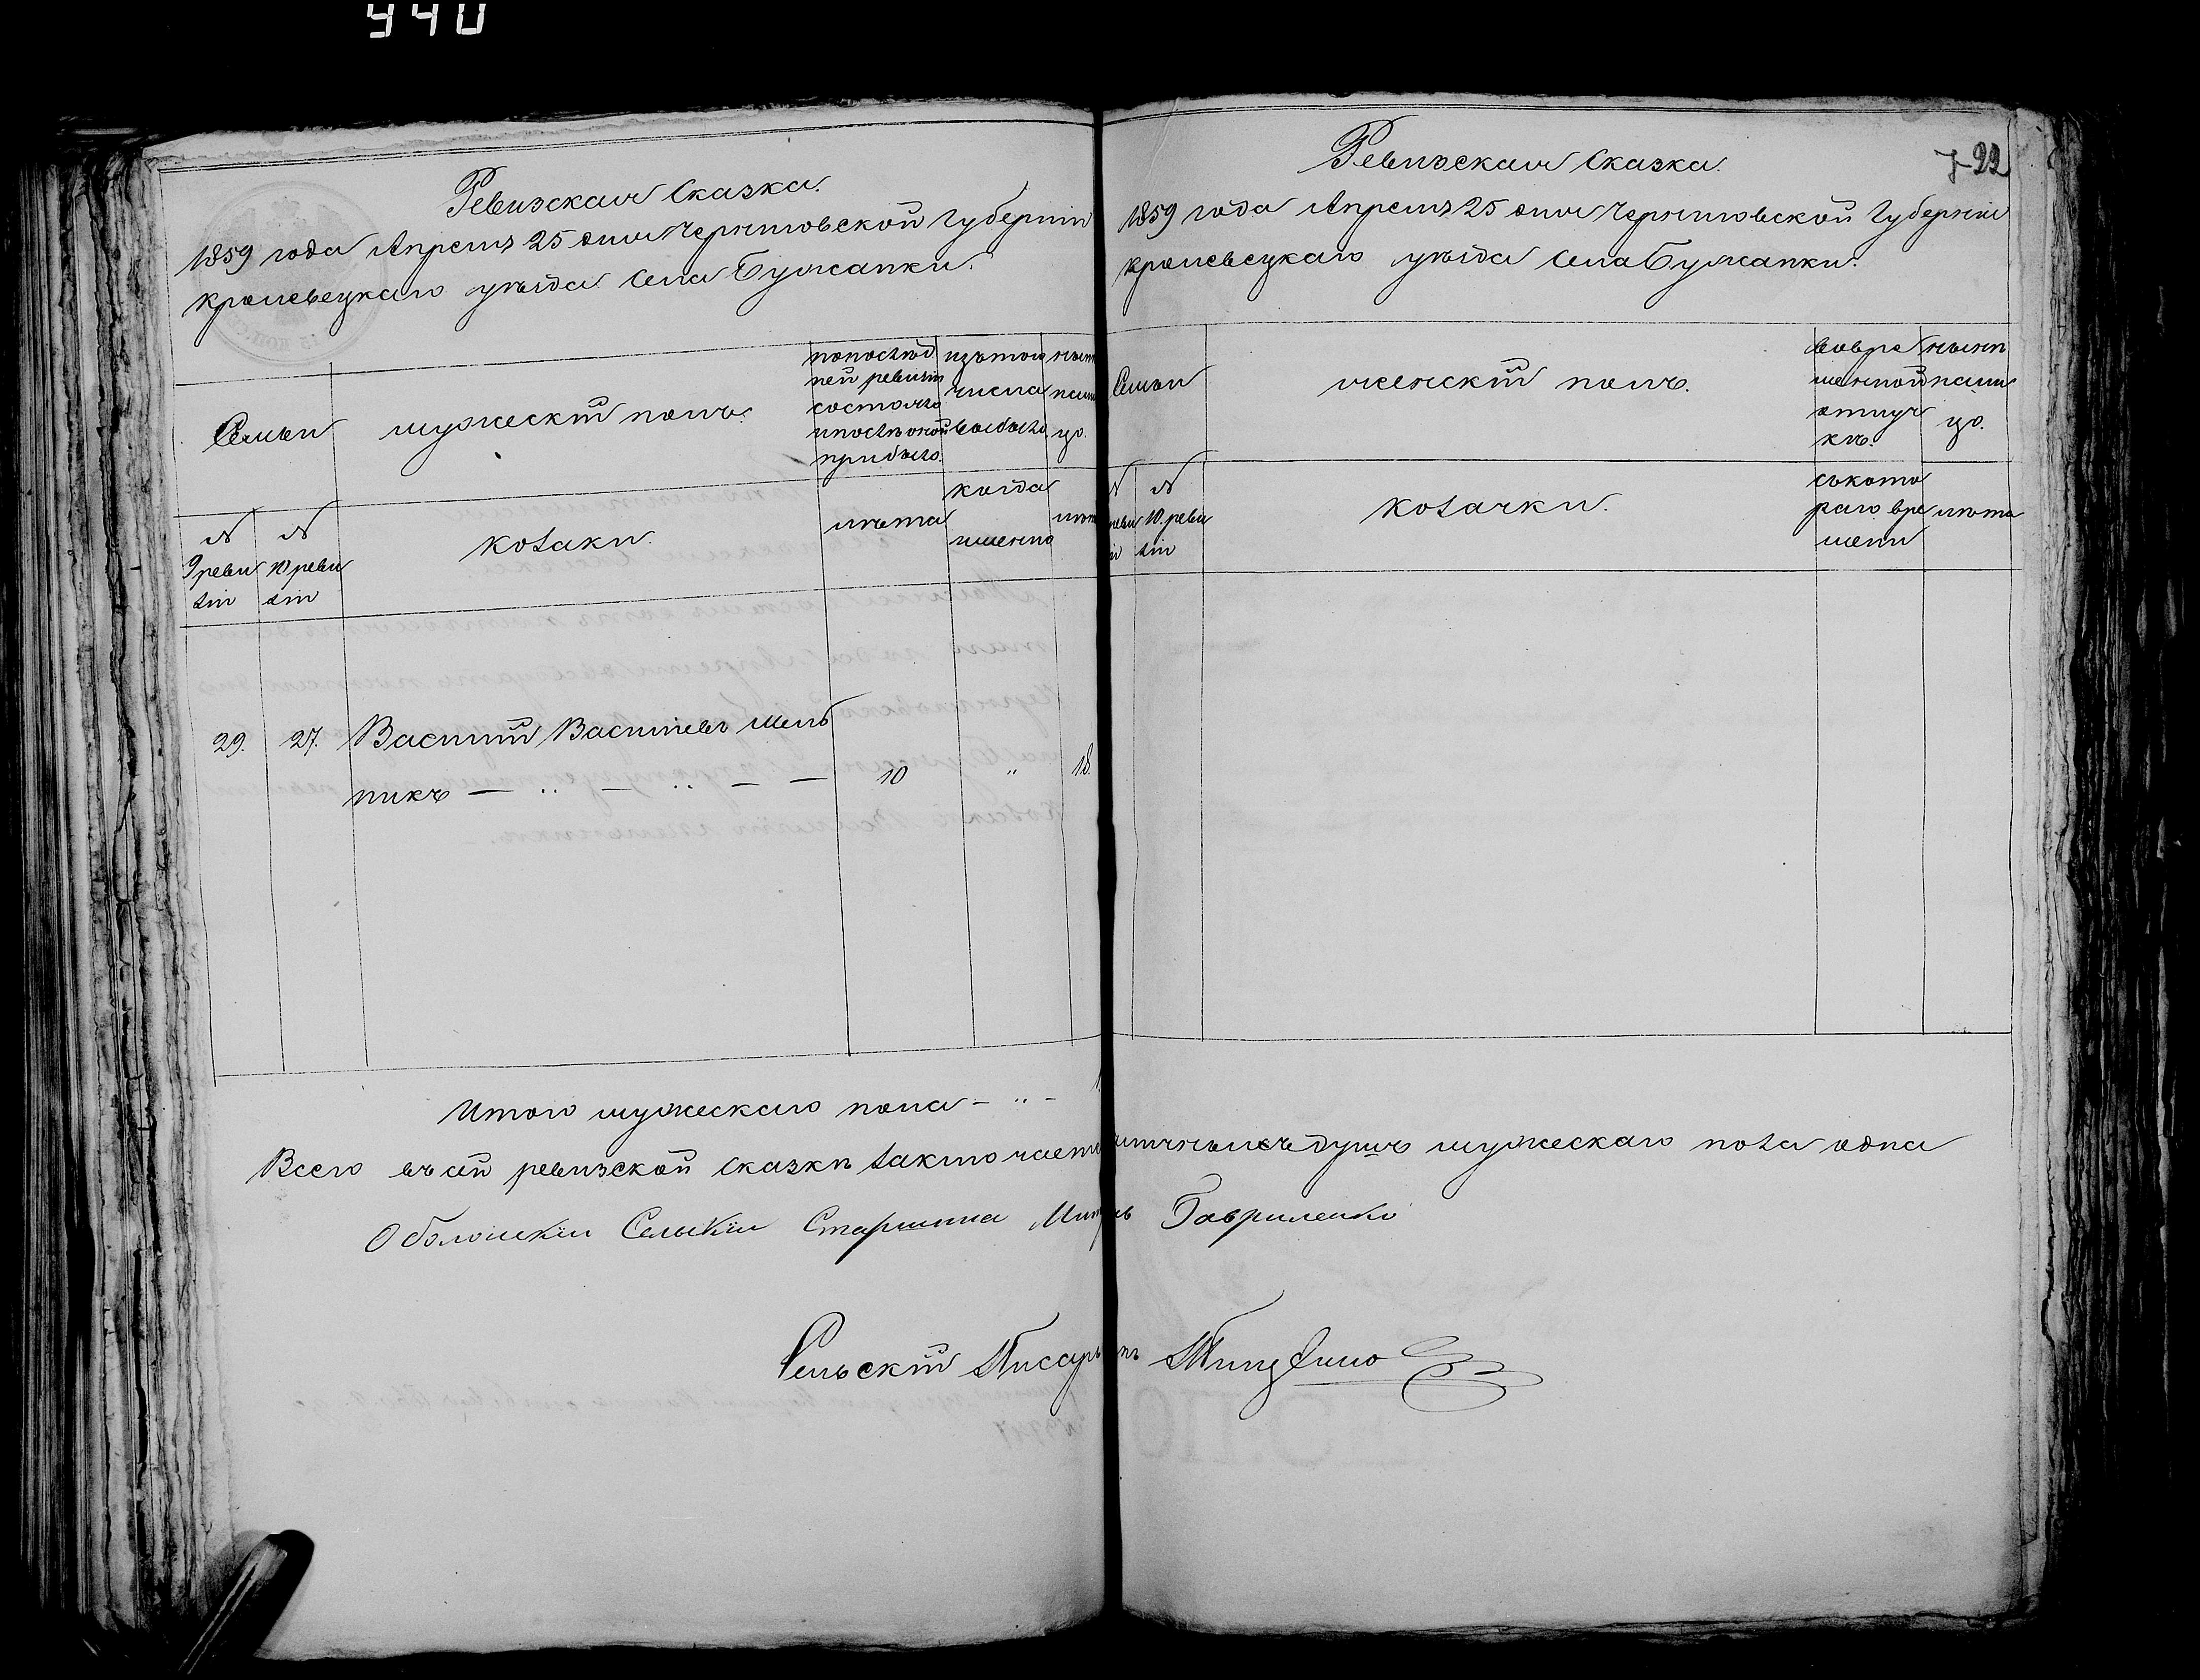 940
Ревизская Сказка.
1859 года Апреля 25 дня Черниговской Губерніи
Кролевецкаго уѣзда Села Бужанки.
Семьи
мужескій полъ.
по послѣд
ней ревизіи
состояло
и послѣ оной
прибыло.
изъ того
числа
выбыло
нынѣ
на ли
цо.
№
9 реви
зіи
№
10 реви
зіи
козаки.
лѣта
когда
именно
лѣта
29. 27. Василий Васильевъ Мель
никъ — „ — „ — — 10 „ 18.
Итого мужескаго пола — „ — 1
Ревизская Сказка.
22
1859 года Апреля 25 дня Черниговской Губерніи
Кролевецкаго уѣзда Села Бужанки.
Семьи
женскій полъ.
во вре
менной
отлуч
кѣ.
нынѣ
на ли
цо.
№
реви
зіи
№
10 реви
зіи
козачки.
съ кото
раго вре
мени
лѣта
Всего въ сей ревизской сказкѣ заключается наличныхъ душъ мужескаго пола одна
Оболонскій Сельскій Старшина Гавриленко
Сельскій Писарь